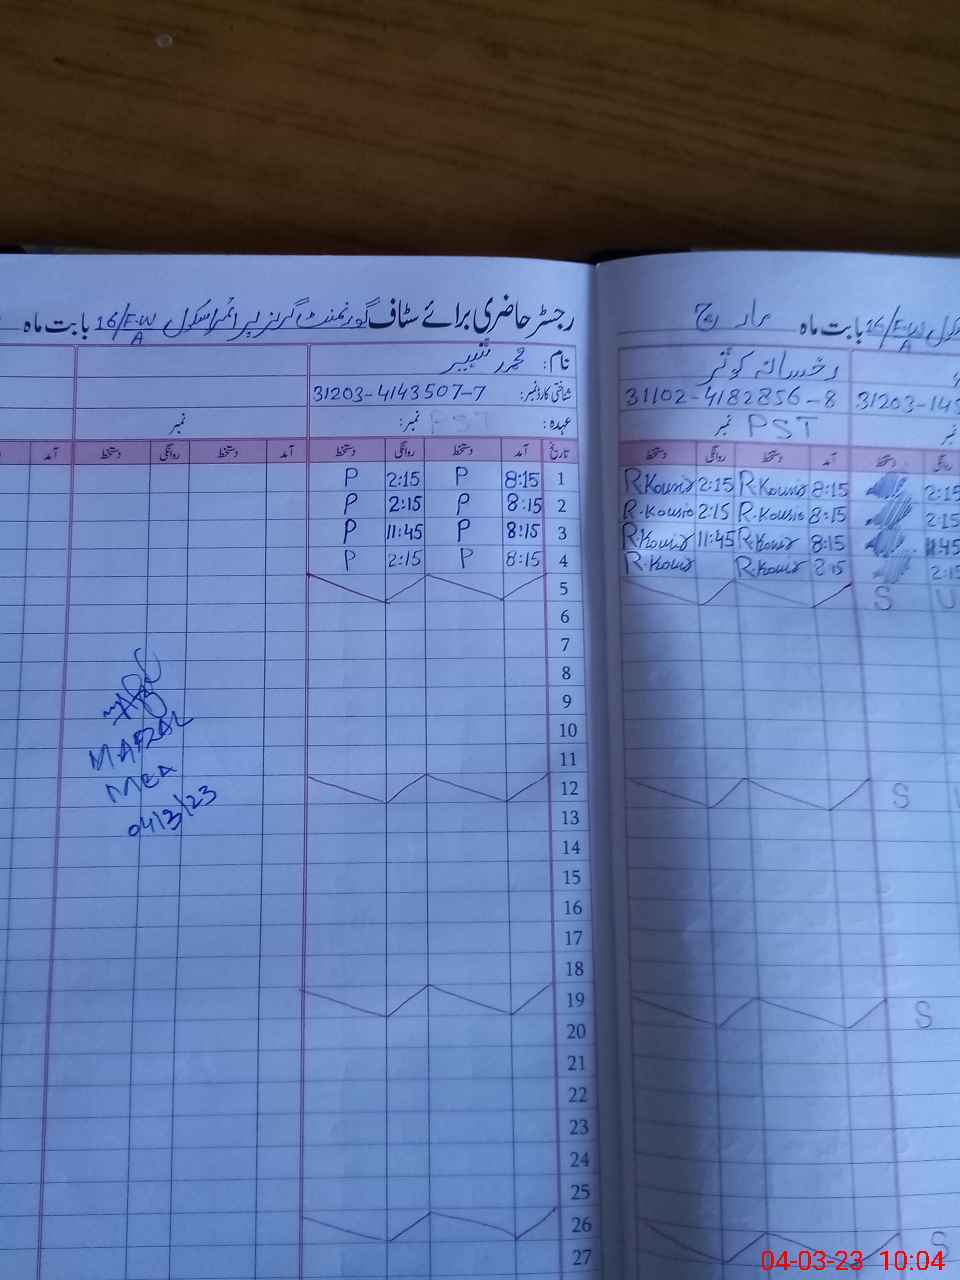 رجسٹر حاضری برائے سٹاف گورنمنٹ گرلز پرائمری سکول 16/F.W بابت ماہ
A
نام: محمد شبیر
شناختی کارڈ نمبر: 31203-4143507-7
عہدہ: PST نمبر:
نمبر
تاریخ آمد دستخط روانگی دستخط آمد دستخط روانگی دستخط آمد
1 8:15 P 2:15 P
2 8:15 P 2:15 P
3 8:15 P 11:45 P
4 8:15 P 2:15 P
5
6
7
8
9
10
11
12
13
14
15
16
17
18
19
20
21
22
23
24
25
26
27
MAFZAL
MEA
04/3/23
16/F.W بابت ماہ مارچ
A
رخسانہ کوثر
31203-145
31102-4182856-8
نمبر
PST نمبر
روانگی دستخط آمد دستخط روانگی دستخط
2:15 8:15 R.Kousir 2:15 R.Kousir
2:15 8:15 R.Kousir 2:15 R.Kousir
11:45 8:15 R.Kousir 11:45 R.Kousir
2:15 8:15 R.Kousir R.Kousir
S U
S
S
S
04-03-23 10:04